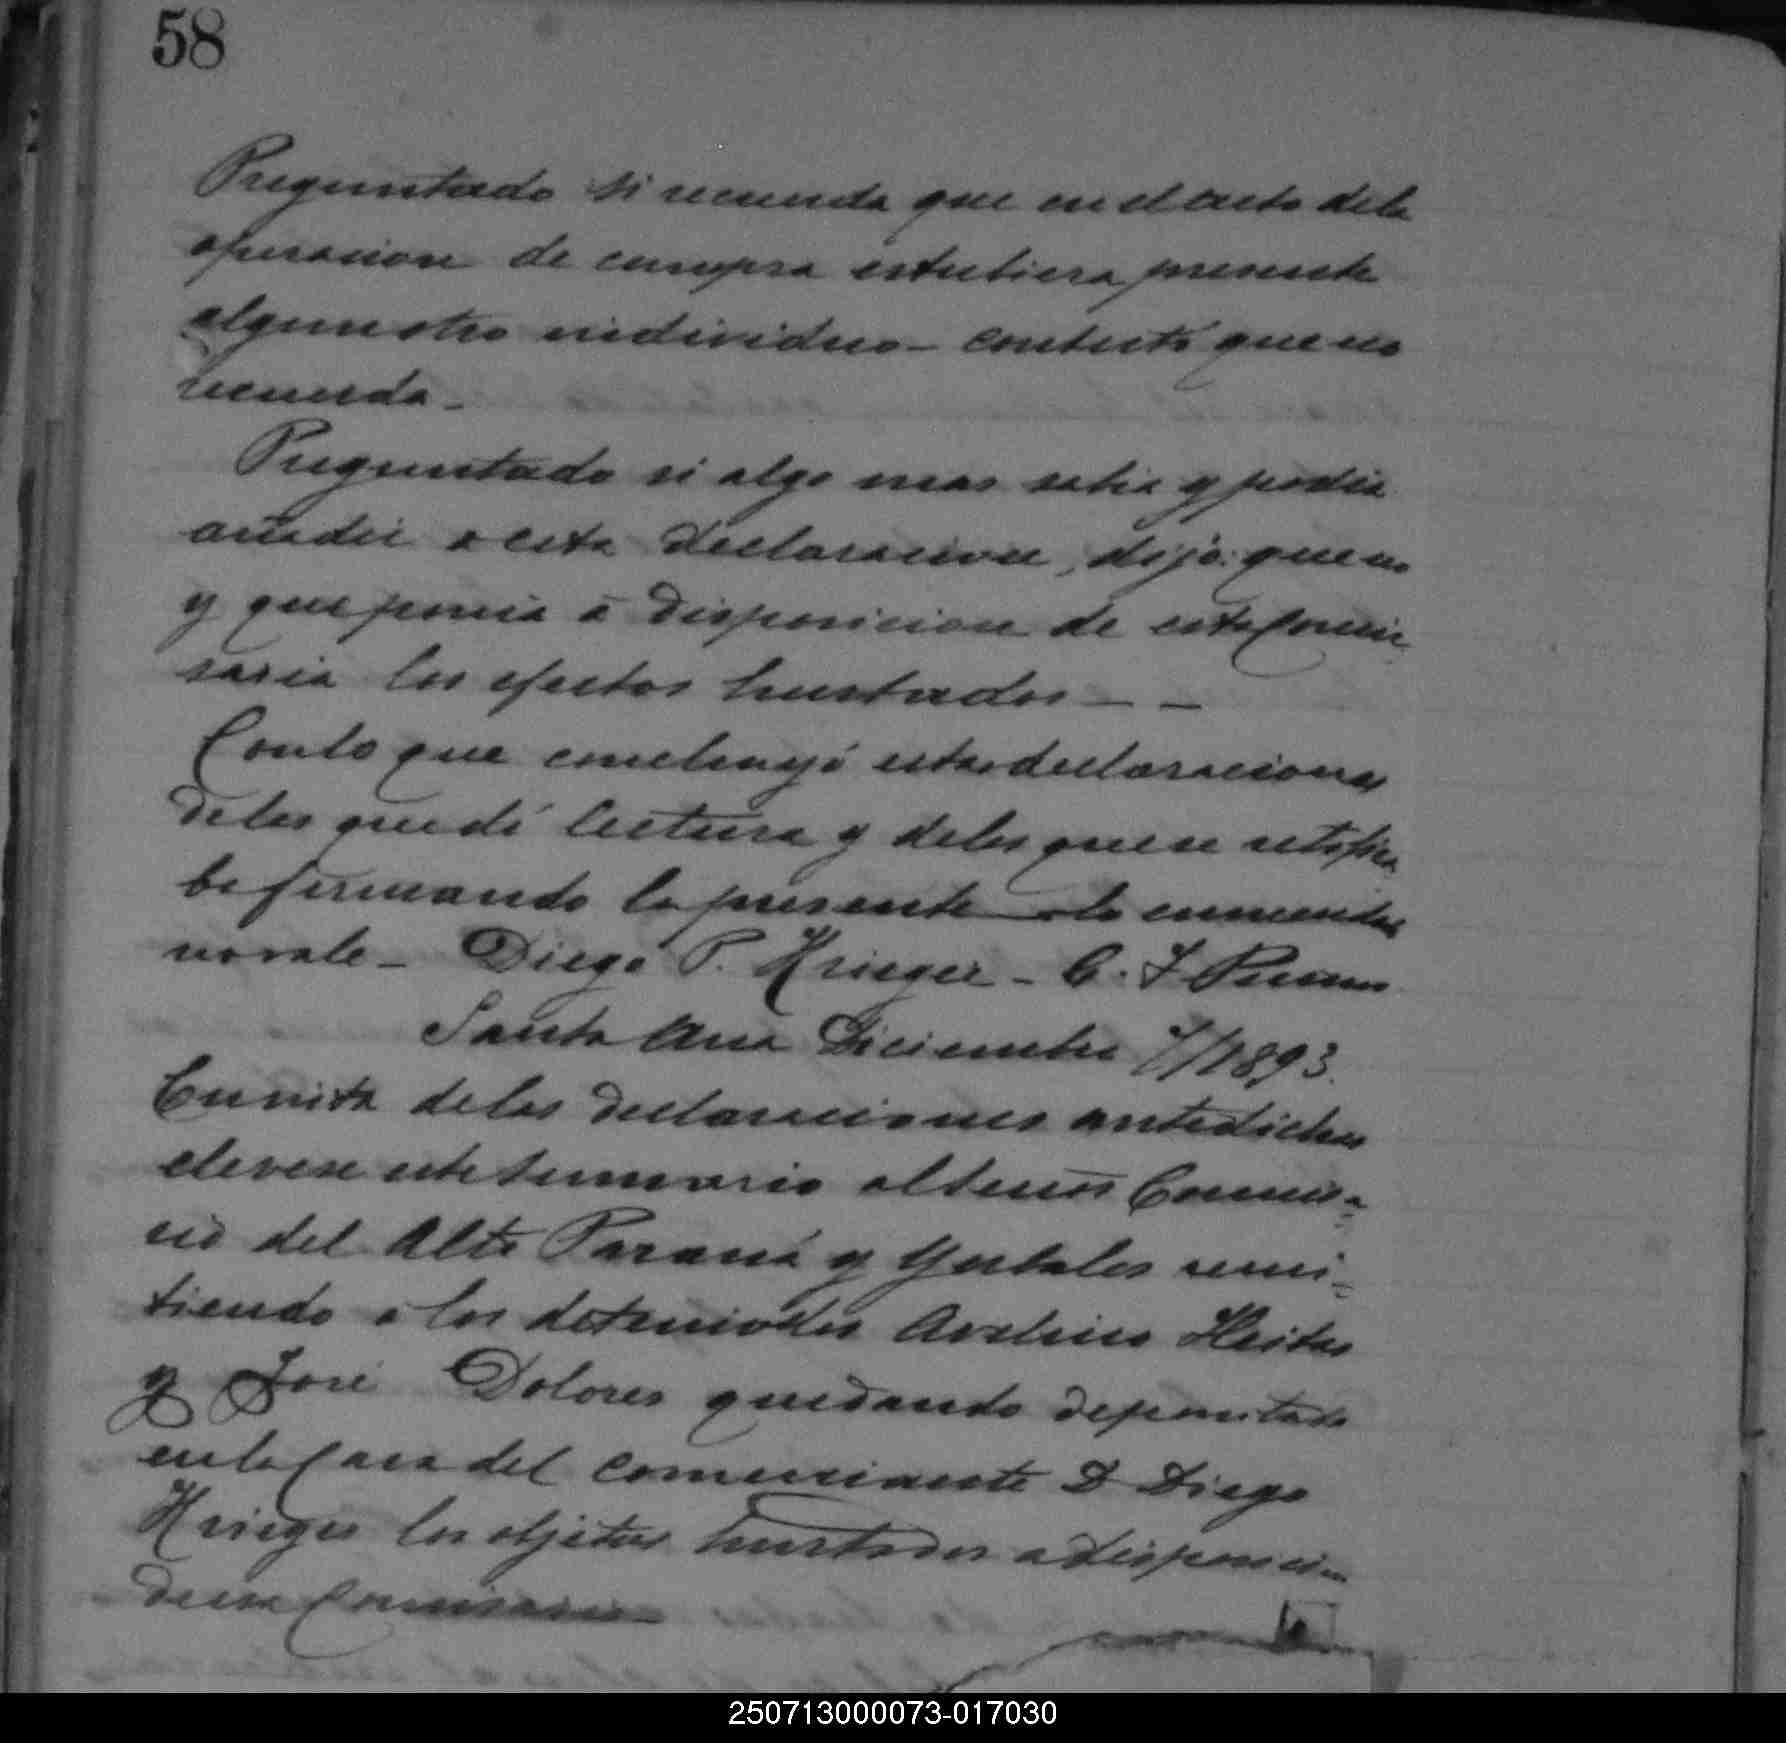 58
Preguntado si recuerda que en el acto de la
operacion de compra estubiera presente
algun otro individuo – contestó que no
recuerda –
Preguntado si algo mas sabia y podia
añadir a esta declaracion, dijo: que no
y que ponia á disposicion de esta Comi
saria los efectos hurtados – –
Con lo que concluyó estas declaraciones
de las que dí lectura y de las que se ratifica
ba firmando la presente – lo enmendado
no vale – Diego P. Krieger – C. F.
Santa Ana Diciembre 7/1893.
En vista de las declaraciones antedichas
elevese este sumario al Señor Comisa=
rio del Alto Paraná y Yerbales remi=
tiendo a los detenidos Avelino
y José Dolores quedando depositado
en la Casa del comerciante D Diego
Krieger los objetos hurtados a disposicion
de esa Comisaria –
250713000073-017030